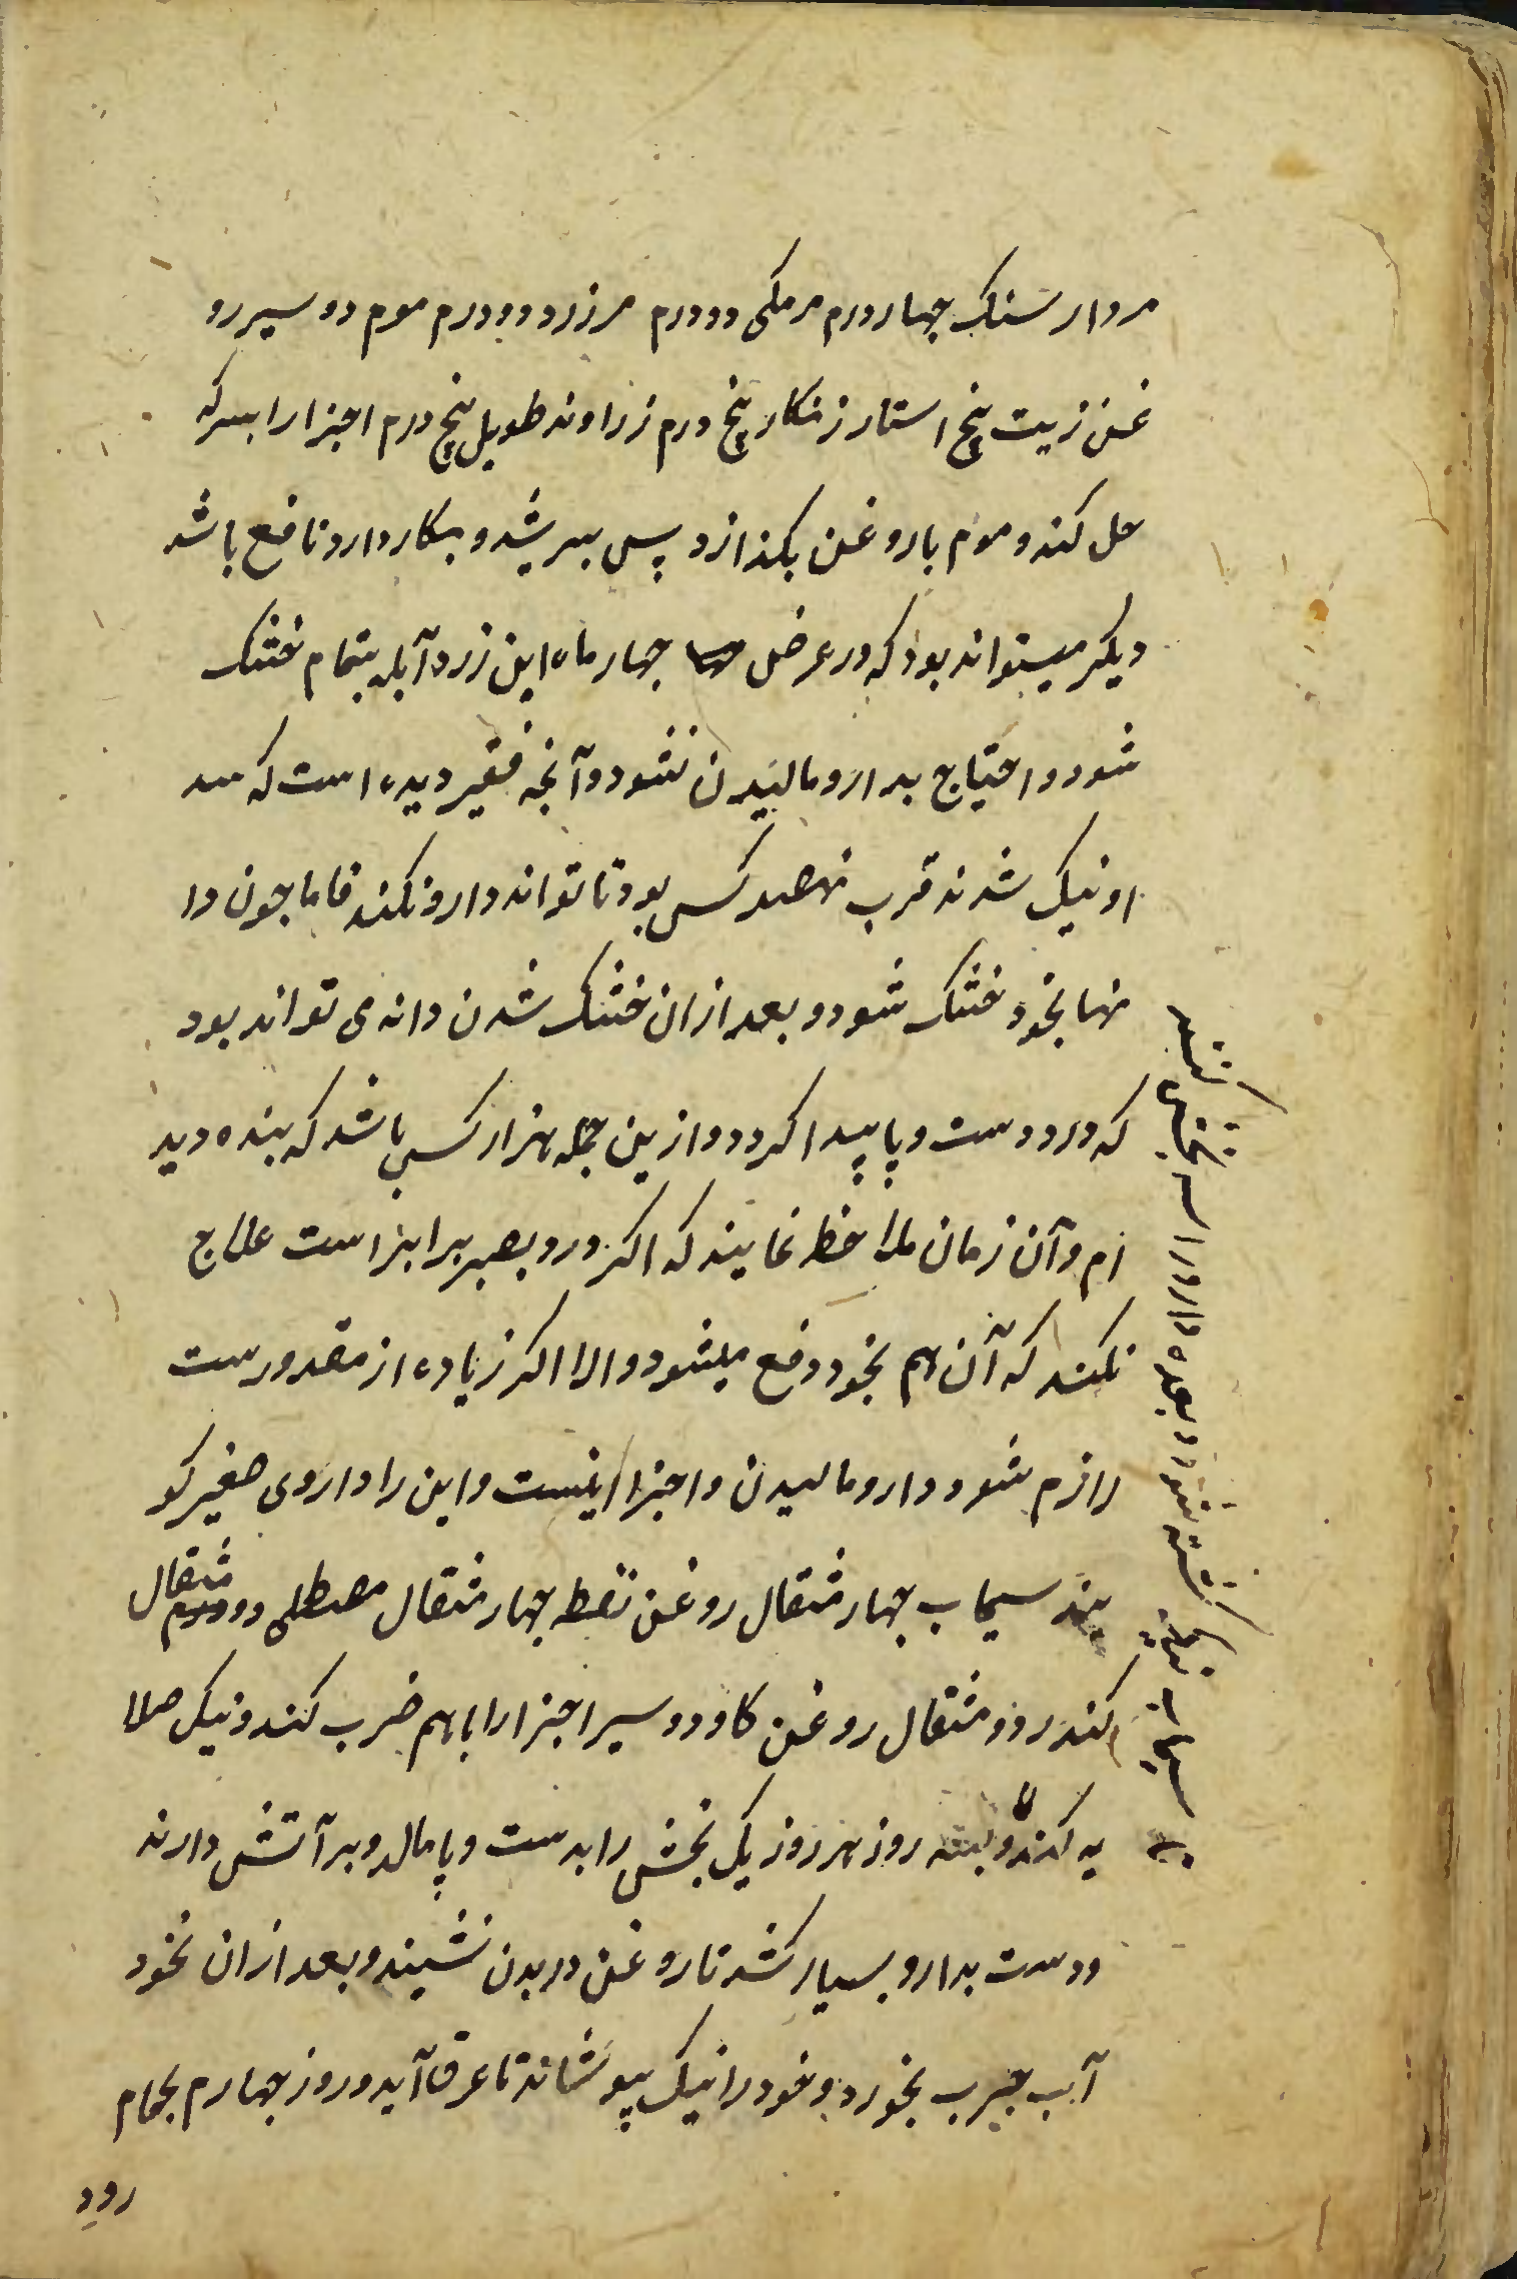 مردار سنک چهار درم مرمکی دو درم مرزرد دو درم موم دو سیر رو
غن زیت پنج استار زنکار پنج درم زراوند طویل پنج درم اجزا را بسرکه
حل کند و موم با روغن بکذازد پس بسریشد و بکار دارد نافع باشد
دیکر میتواند بود که در عرض چهار ماه این زرد آبله بتمام خشک
شود و احتیاج بدارو مالیدن نشود و آنچه فقیر دیده است که
او نیک شدند قرب نهصد کس بود تا تواند دارو نکند فاما چون دا
نها بخود خشک شود و بعد ازان خشک شدن دانه می تواند بود
که درد دست و پا پیدا کردد و ازین جمله هزار کس باشد که بنده دید
ام و آن زمان ملاحظه نمایند که اکر درد بصبر برابر است علاج
نکند که آن هم بخود دفع میشود و الا اکر زیاده از مقدورست
لازم شود دارو مالیدن و اجزا اینست و این را داروی صغیر کو
یند سیماب چهار مثقال روغن نفط چهار مثقال مصطکی دو مثقال
کندر دو مثقال روغن کاو دو سیر اجزا را باهم ضرب کند و نیک صلا
یه کند و روز هر روز یک بخش را بدست و پا مالد و بر آتش دارند
و دست بدارو بسیار کشد تا روغن در بدن نشیند و بعد ازان نخود
آب چرب بخورد و خود را نیک بپوشاند تا عرق آید و روز چهارم بحمام
رود
سیماب نیک کشته شود و بعده دارو را سه بخش کنند